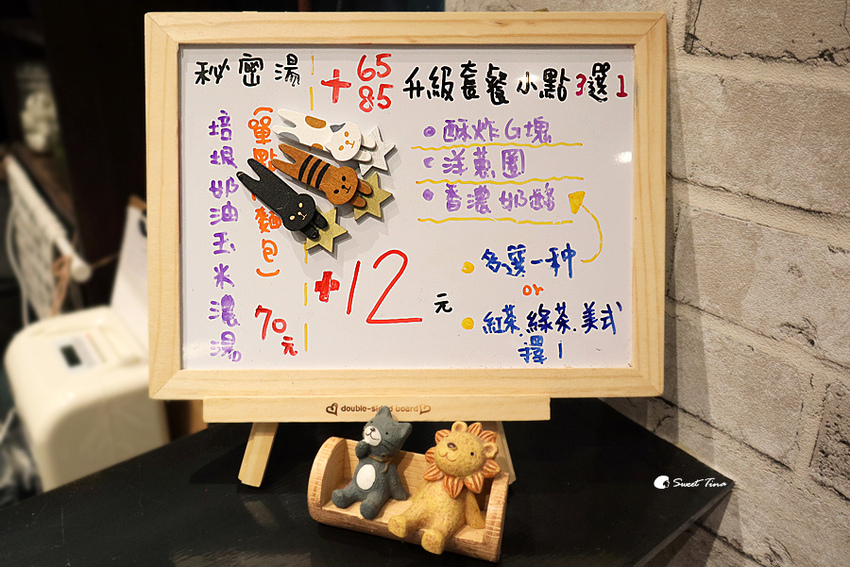 秘密湯
培根奶油玉米濃湯
(單點 麵包)
70元
+65
85
升級套餐小點3選1
酥炸G塊
洋蔥圈
香濃奶酪
+12元
多選一种
or
紅茶.綠茶.美式
擇1
double-sided board
Sweet Tina